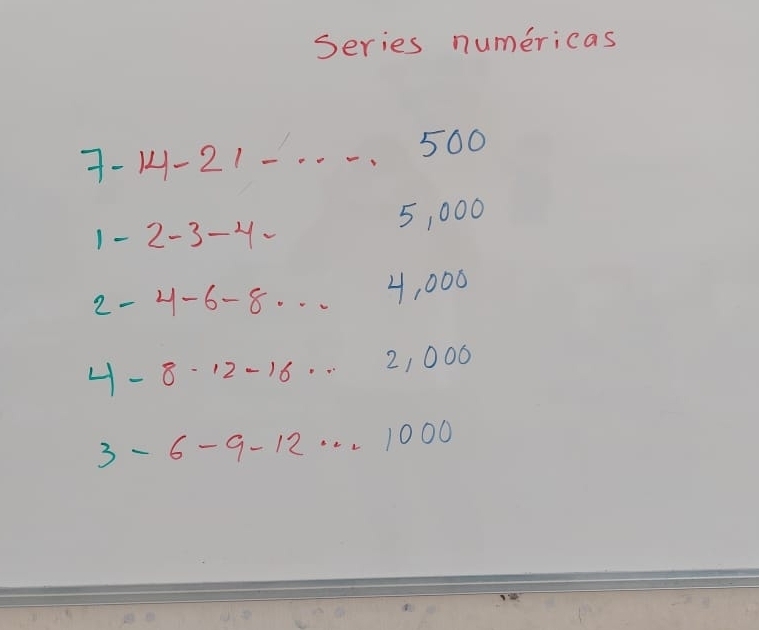 Series numéricas
7-14-21-..-. 500
1-2-3-4- 5,000
2-4-6-8... 4,000
4-8-12-16.. 2,000
3-6-9-12... 1000